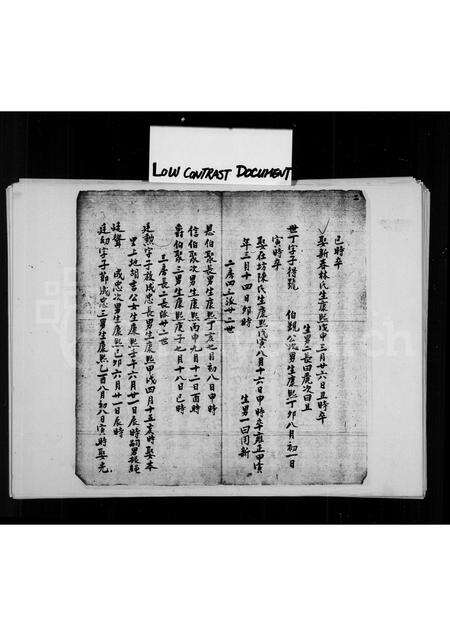 LOW CONTRAST DOCUMENT
巳時卒
娶新春林氏生康熙戊申三月廿六日丑時卒
生男二長曰 次曰
世丁字子待號 伯觀公次男生康熙丁卯八月初一日
寅時卒
娶在坊陳氏生康熙戊寅八月十六日申時卒雍正甲寅
年三月十四日卯時 生男一曰
二房四上派廿二世
伯聚長男生康熙丁亥七月初八日申時
信伯聚次男生康熙丙申九月十二日酉時
爵伯聚三男生康熙庚子七月十八日巳時
三房長二長派廿二世
廷勳字子 成忠長男生康熙甲戌四月十五亥時娶本
里上地胡 公女生康熙壬午六月廿一日辰時
廷聲 成忠次男生康熙己卯六月廿一日辰時
廷 字子 成忠三男生康熙乙酉八月初八日寅時娶光